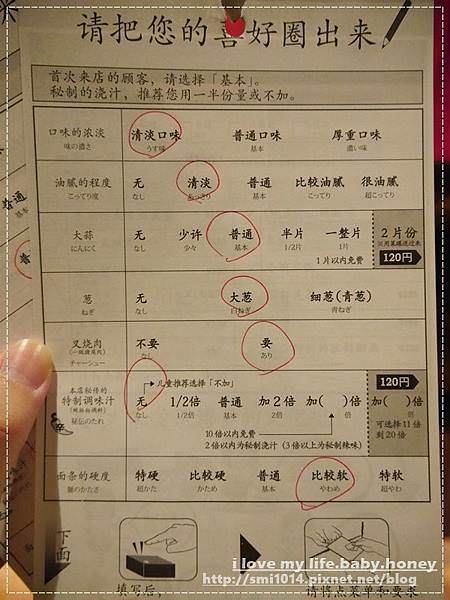 请把您的喜好圈出来
首次来店的顾客，请选择「基本」。
秘制的浇汁，推荐您用一半份量或不加。
口味的浓淡 清淡口味 普通口味 厚重口味
味の濃さ うす味 基本 濃い味
油腻的程度 无 清淡 普通 比较油腻 很油腻
こってり度 なし あっさり 基本 こってり 超こってり
大蒜 无 少许 普通 半片 一整片 2片份
にんにく なし 少々 基本 1/2片 1片
1片以内免费 120円
葱 无 大葱 细葱(青葱)
ねぎ なし 白ねぎ 青ねぎ
叉烧肉 不要 要
チャーシュー なし あり
儿童推荐选择「不加」 120円
本店秘传的
特制调味汁 无 1/2倍 普通 加2倍 加( )倍 加( )倍
秘伝のたれ なし 1/2倍 基本 2倍 倍 倍
10倍以内免费 可选择11倍
2倍以内为秘制浇汁 (3倍以上为秘制辣味) 到20倍
面条的硬度 特硬 比较硬 普通 比较软 特软
麺のかたさ 超かた かため 基本 やわめ 超やわ
下面
填写后， 请将点菜单和要求
i love my life.baby.honey
http://smi1014.pixnet.net/blog